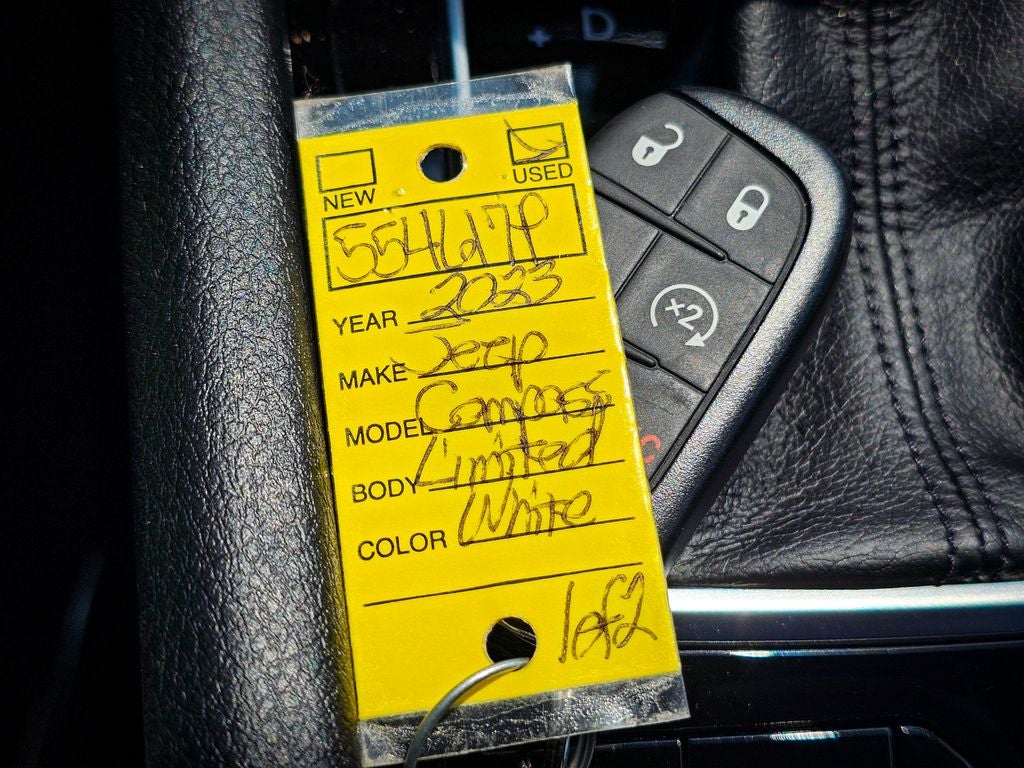 + D
NEW USED
554617P
YEAR 2023
MAKE Jeep
MODEL Compass
BODY Limited
COLOR White
1 of 2
x2